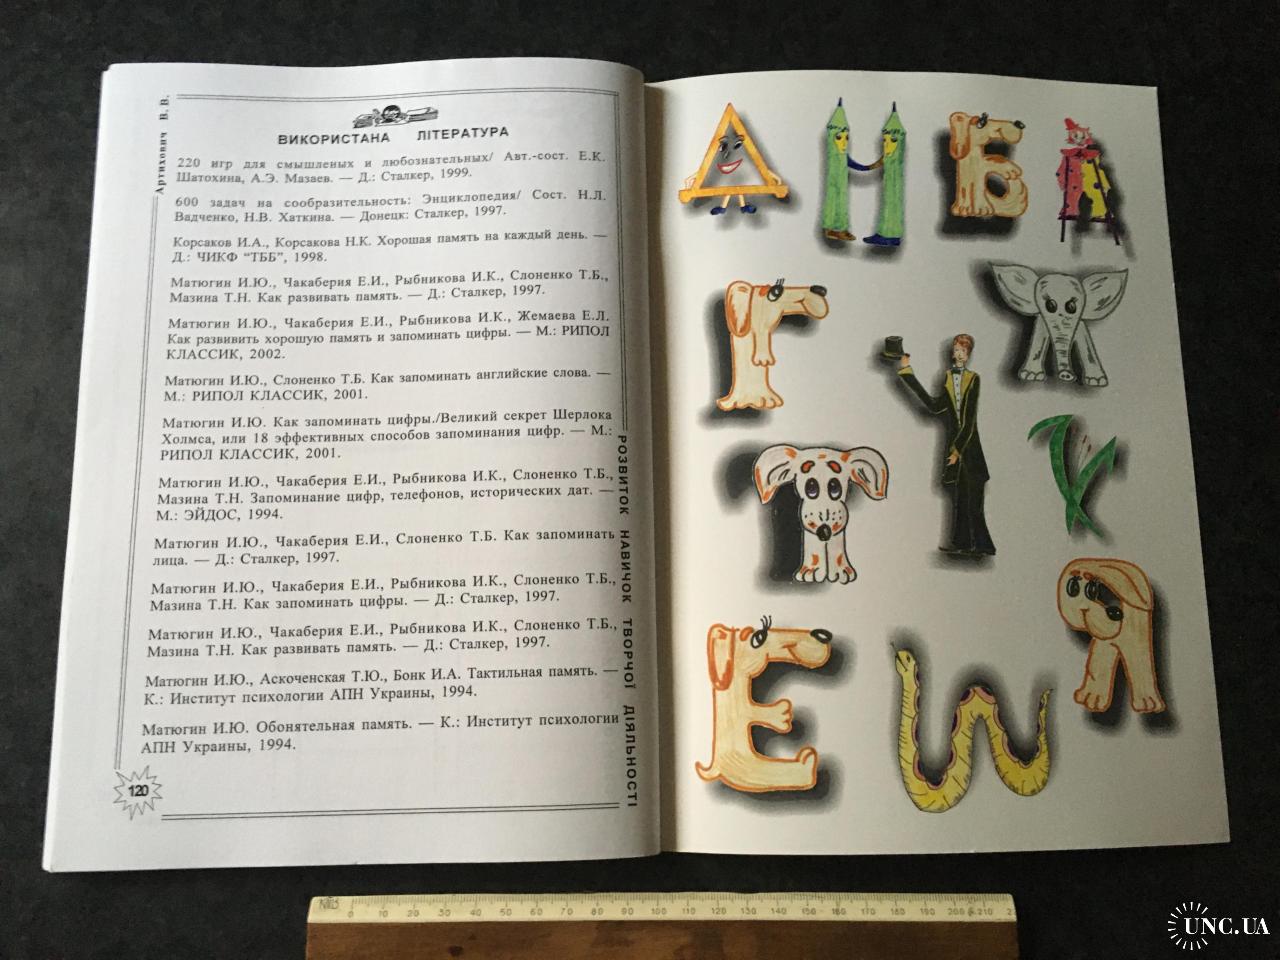 Артихович В. В.
ВИКОРИСТАНА ЛІТЕРАТУРА
220 игр для смышленых и любознательных/ Авт.-сост. Е.К.
Шатохина, А.Э. Мазаев. — Д.: Сталкер, 1999.
600 задач на сообразительность: Энциклопедия/ Сост. Н.Л.
Вадченко, Н.В. Хаткина. — Донецк: Сталкер, 1997.
Корсаков И.А., Корсакова Н.К. Хорошая память на каждый день. —
Д.: ЧИКФ “ТББ”, 1998.
Матюгин И.Ю., Чакаберия Е.И., Рыбникова И.К., Слоненко Т.Б.,
Мазина Т.Н. Как развивать память. — Д.: Сталкер, 1997.
Матюгин И.Ю., Чакаберия Е.И., Рыбникова И.К., Жемаева Е.Л.
Как развивить хорошую память и запоминать цифры. — М.: РИПОЛ
КЛАССИК, 2002.
Матюгин И.Ю., Слоненко Т.Б. Как запоминать английские слова. —
М.: РИПОЛ КЛАССИК, 2001.
Матюгин И.Ю. Как запоминать цифры./Великий секрет Шерлока
Холмса, или 18 эффективных способов запоминания цифр. — М.:
РИПОЛ КЛАССИК, 2001.
Матюгин И.Ю., Чакаберия Е.И., Рыбникова И.К., Слоненко Т.Б.,
Мазина Т.Н. Запоминание цифр, телефонов, исторических дат. —
М.: ЭЙДОС, 1994.
Матюгин И.Ю., Чакаберия Е.И., Слоненко Т.Б. Как запоминать
лица. — Д.: Сталкер, 1997.
Матюгин И.Ю., Чакаберия Е.И., Рыбникова И.К., Слоненко Т.Б.,
Мазина Т.Н. Как запоминать цифры. — Д.: Сталкер, 1997.
Матюгин И.Ю., Чакаберия Е.И., Рыбникова И.К., Слоненко Т.Б.,
Мазина Т.Н. Как развивать память. — Д.: Сталкер, 1997.
Матюгин И.Ю., Аскоченская Т.Ю., Бонк И.А. Тактильная память. —
К.: Институт психологии АПН Украины, 1994.
Матюгин И.Ю. Обонятельная память. — К.: Институт психологии
АПН Украины, 1994.
120
РОЗВИТОК НАВИЧОК ТВОРЧОЇ ДІЯЛЬНОСТІ
Д И Б А
Г Т
Т К
Я
Е
0 10 20 30 40 50 60 70 80 90 100 110 120 130 140 150 160 170 180 190 200 210
UNC.UA